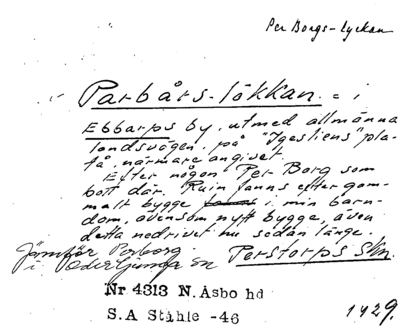 Per Borgs-lyckan
Parbårs-lökkan. = i
Ebbarps by, utmed allmänna
landsvägen, på "Igesliens" pla-
tå, närmare angivet.
Efter någon "Per Borg som
bott där. Ruin fanns efter gam-
malt bygge i min barn-
dom, ävensom nytt bygge, även
detta nedrivet nu sedan länge.
Jämför Perborg
i Oderljunga sn Perstorps skn.
Nr 4313 N. Åsbo hd
S.A Ståhle -46
1929.